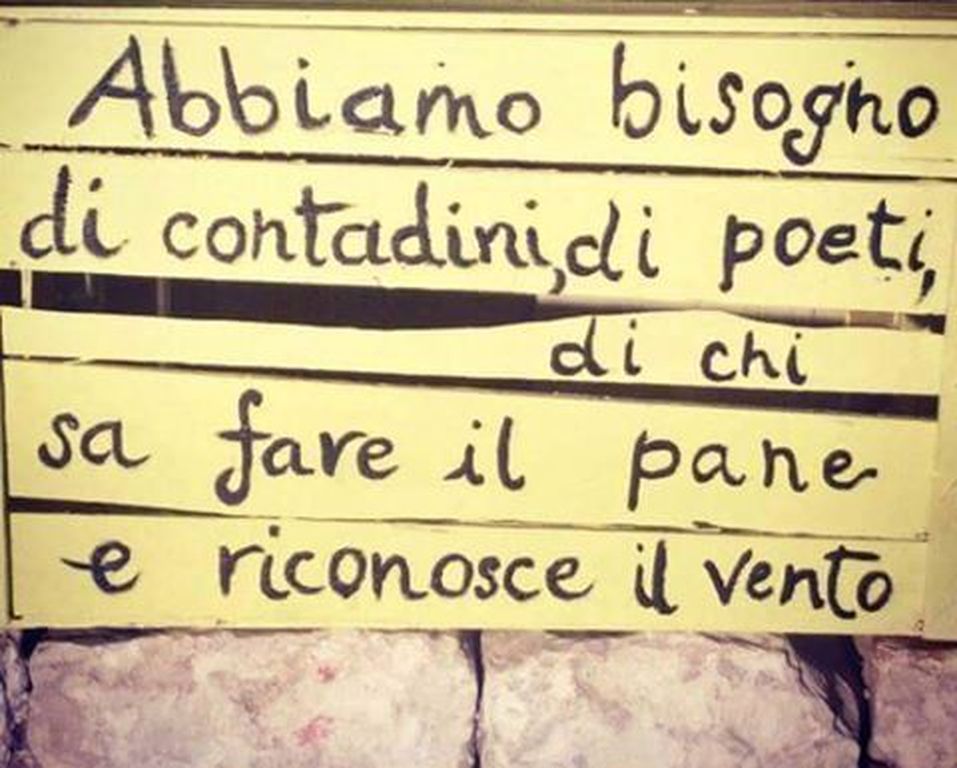 Abbiamo bisogno
di contadini, di poeti,
di chi
sa fare il pane
e riconosce il vento